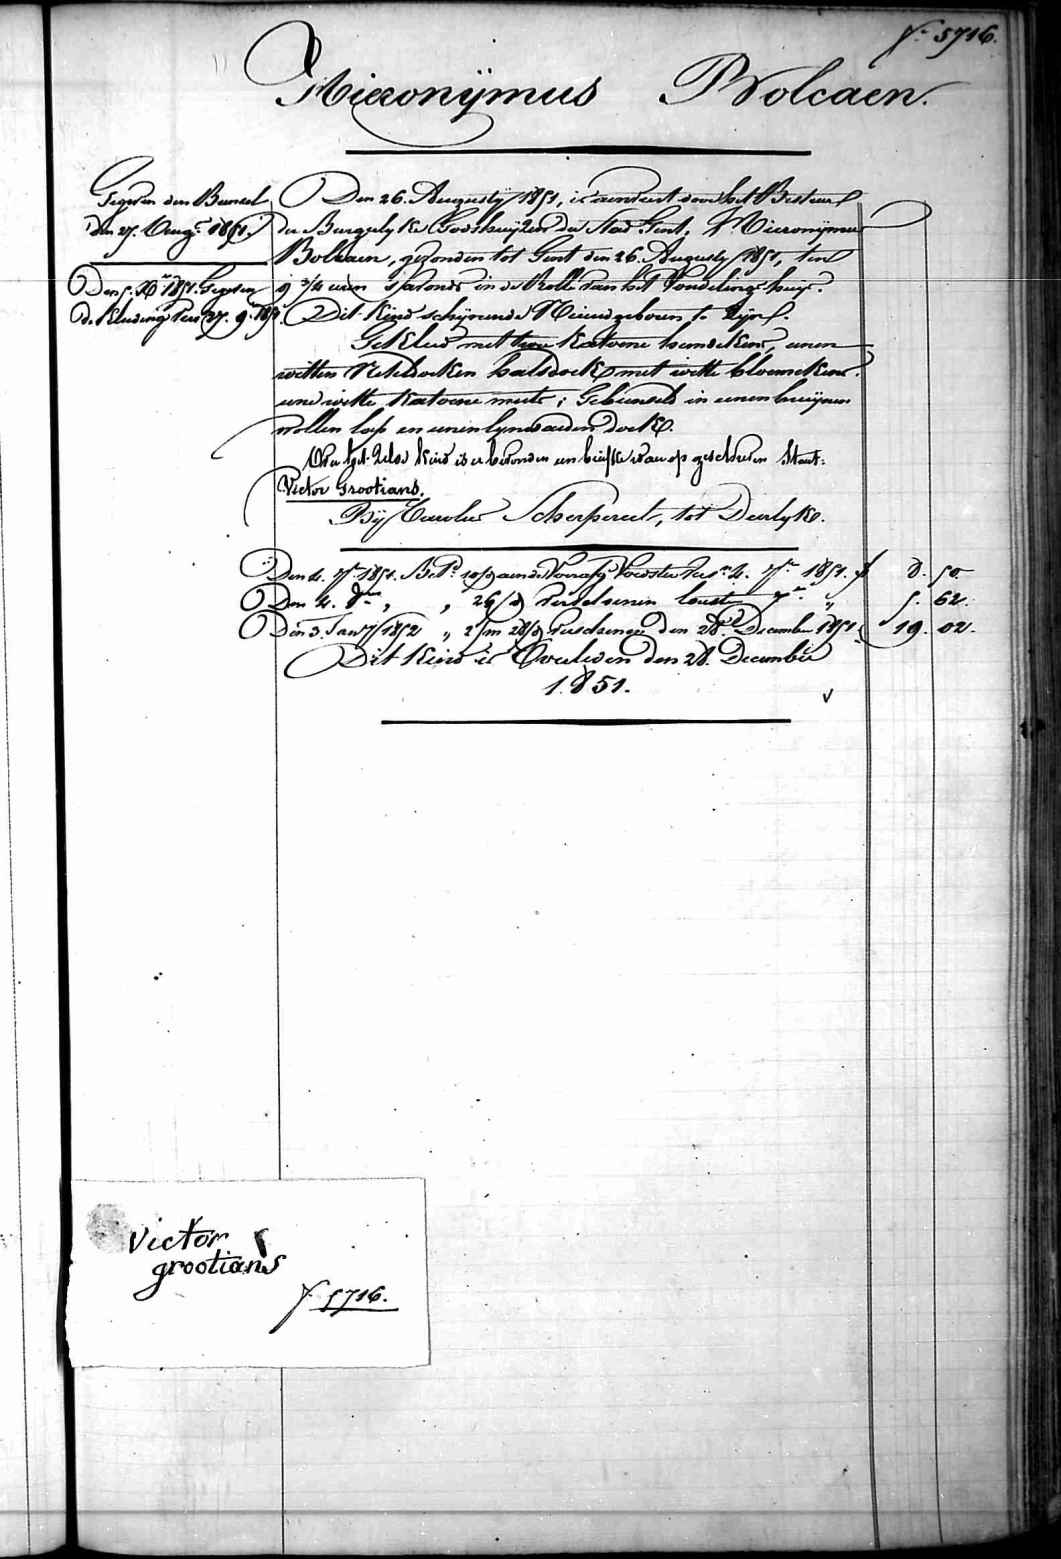 f° 5716.
Hieronÿmus Bolcaen.
Gegeven den Bundel
den 27. Aug. 1851.
Den 5. Xber 1851. Gegeven
de Kleeding Per 27. 9ber 1851.
Den 26. Augusty 1851, is aenveert door het Bestuer
der Burgerlyke Godshuijzen der Stad Gent, Hieronÿmus
Bolcaen, gezonden tot Gent den 26. Augusty 1851, ten
9 3/4 uren s'avonds in de Rolle van het Vondelings huijs.
Dit Kind schijnende Nieuwgeboren te Zijn.
Gekleed met twee Katoene hemdekens, eenen
witten neteldoeken halsdoek met witte bloemekens.
eene witte Katoene muts; Gebunseld in eenen bruijnen
wollen lap en eenen lynwaeden doek.
Op het zelve Kind is er bevonden een briefke waer op geschreven staet:
Victor Grootians.
Bÿ Carolus Scherpereel, tot Deerlyk.
Den 4. 7ber 1851. Betd 10/ aende Voorafg Voedster Per 4. 7ber 1851. f 8. 50
Den 4. 8ber „ „ 26/d Verschenen laesten 7ber „ 5. 62.
Den 3. Jany 1852 „ 2/m 28/d Verschenen den 28. December 1851 19. 02.
Dit Kind is Overleden den 28. December
1851.
victor
grootians
f° 5716.